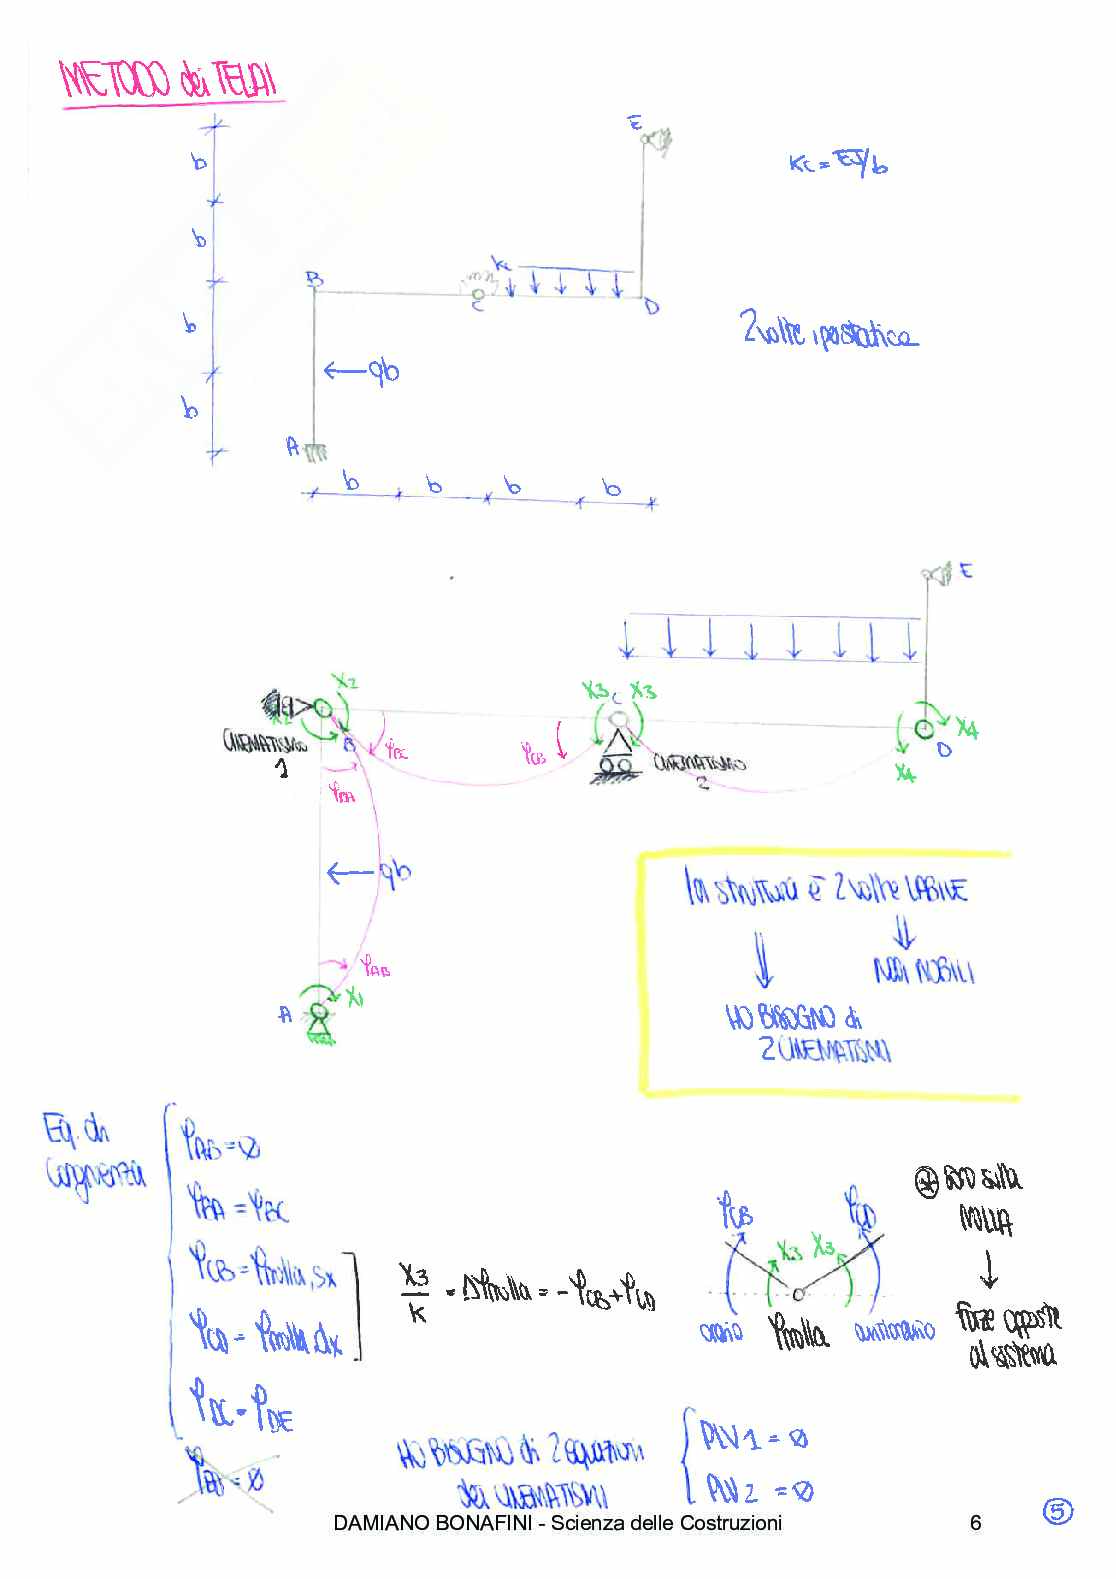 METODO dei TELAI
E
b
Kc = EJ/b
b
B
Kc
C
D
2 volte ipostatica
b
qb
b
A
b b b b
E
X2
X3 C X3
X2
X4
CINEMATISMO
1
B
φBC
φCB
CINEMATISMO
2
D
X4
φBA
qb
la struttura è 2 volte LABILE
φAB
NODI MOBILI
X1
A
HO BISOGNO di
2 CINEMATISMI
Eq. di
congruenza
φAB = 0
φBA = φBC
φCB = φmolla,sx
φCD = φmolla,dx
φDC = φDE
φED = 0
X3/K = Δφmolla = -φCB + φCD
φCB φCD
X3 X3
orario φmolla antiorario
* sono sulla
MOLLA
forze opposte
al sistema
HO BISOGNO di 2 equazioni
dei CINEMATISMI
PLV 1 = 0
PLV 2 = 0
DAMIANO BONAFINI - Scienza delle Costruzioni
6
5